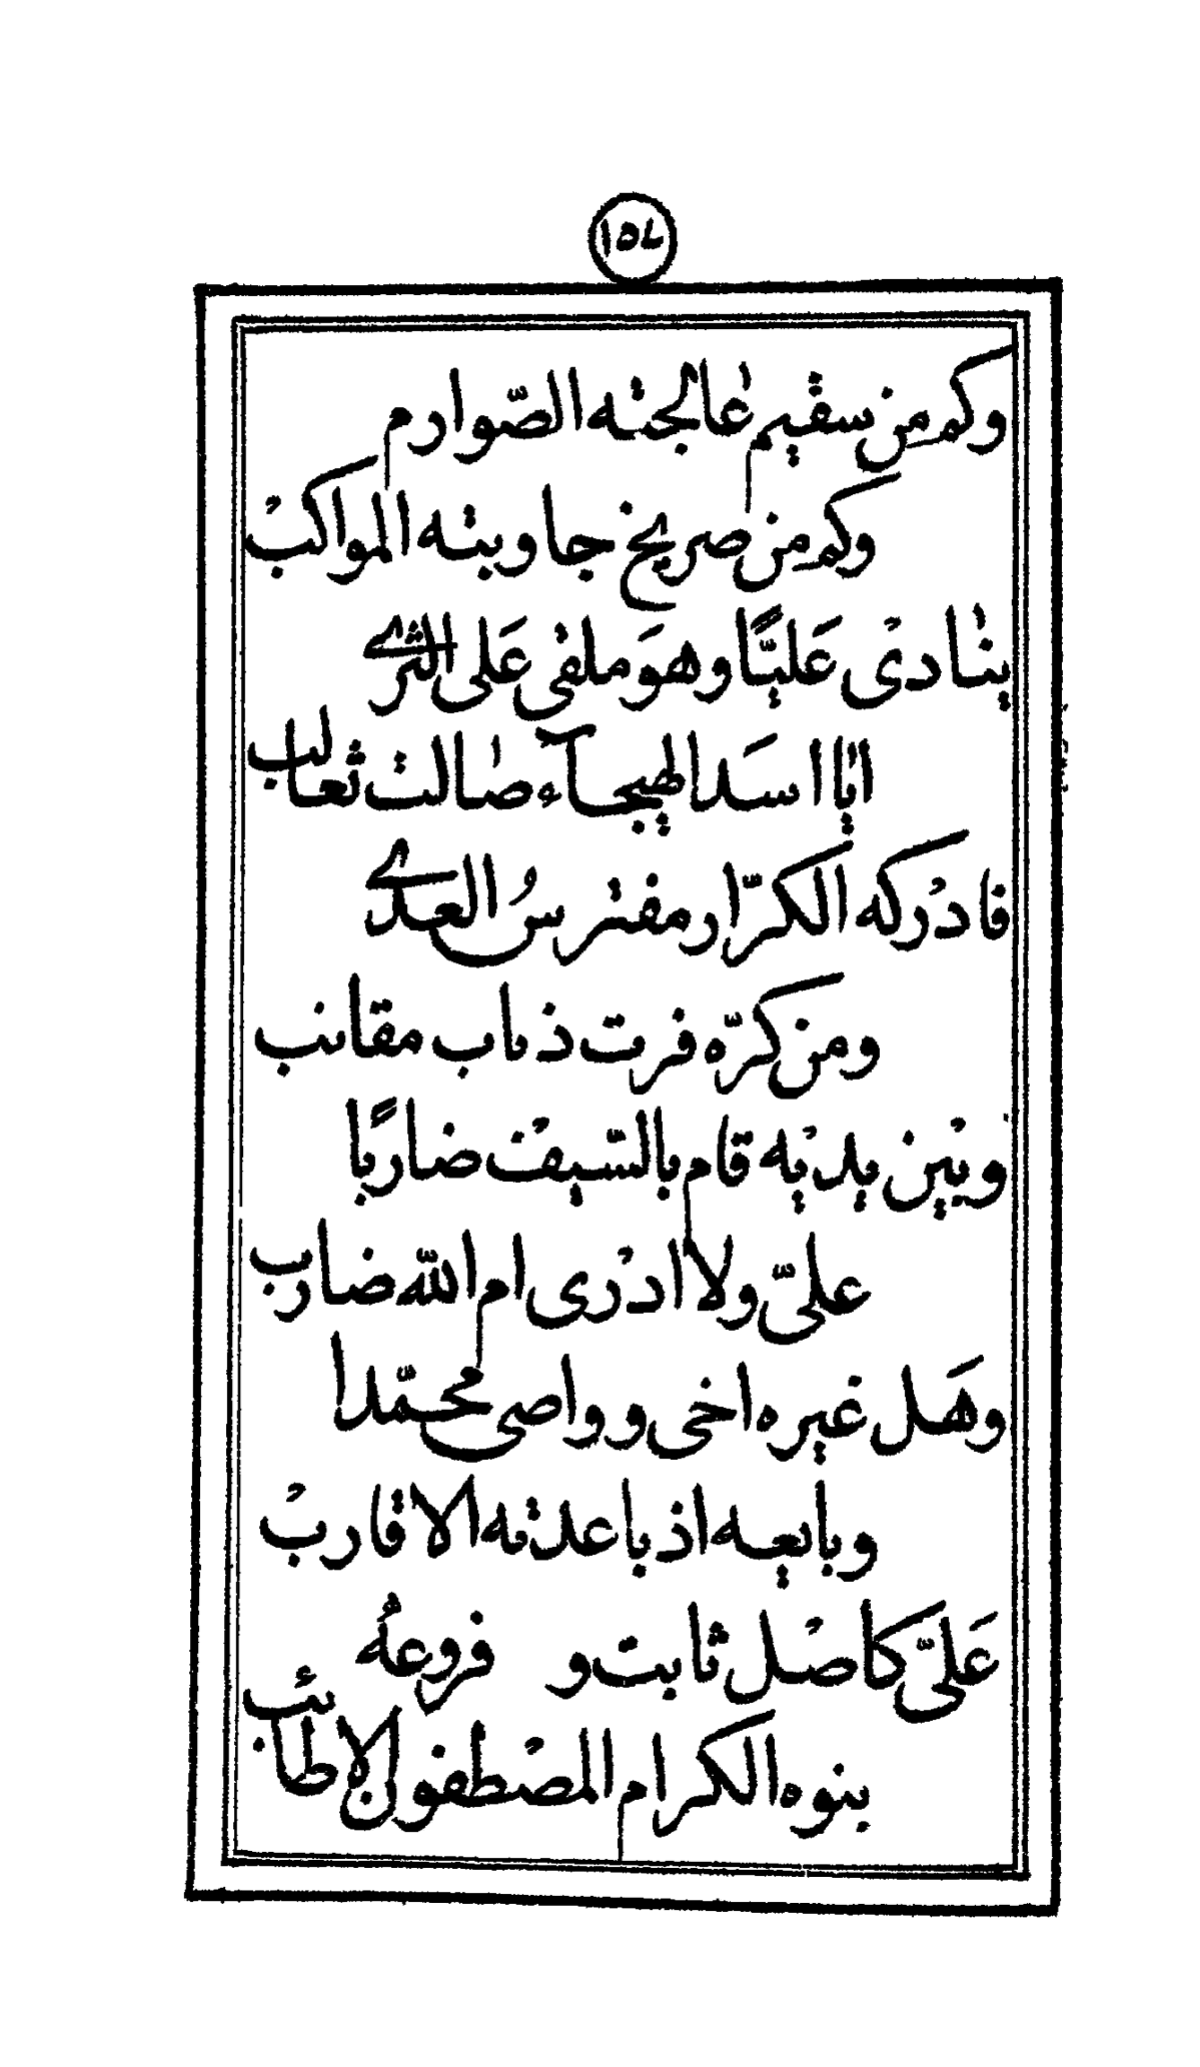 ١٥٧
وكم من سقيم عالجته الصّوارم
وكم من صريخ جاوبته المواكبْ
ينادىْ عَليًّا وهوَ ملقى عَلى الثرى
ايا اسَد الهيجآء صالت ثعالب
فادْركه الكرّار مفترسُ العدى
ومن كرّه فرت ذباب مقانب
وبيْن يديْه قام بالسّيفْ ضاربًا
علىّ ولا ادْرى ام اللّه ضارب
وهَل غيره اخى وواصى محمّدا
وبايعه اذ باعدته الاقاربْ
عَلىّ كاصْل ثابت و فروعهُ
بنوه الكرام المصْطفون الاطائب